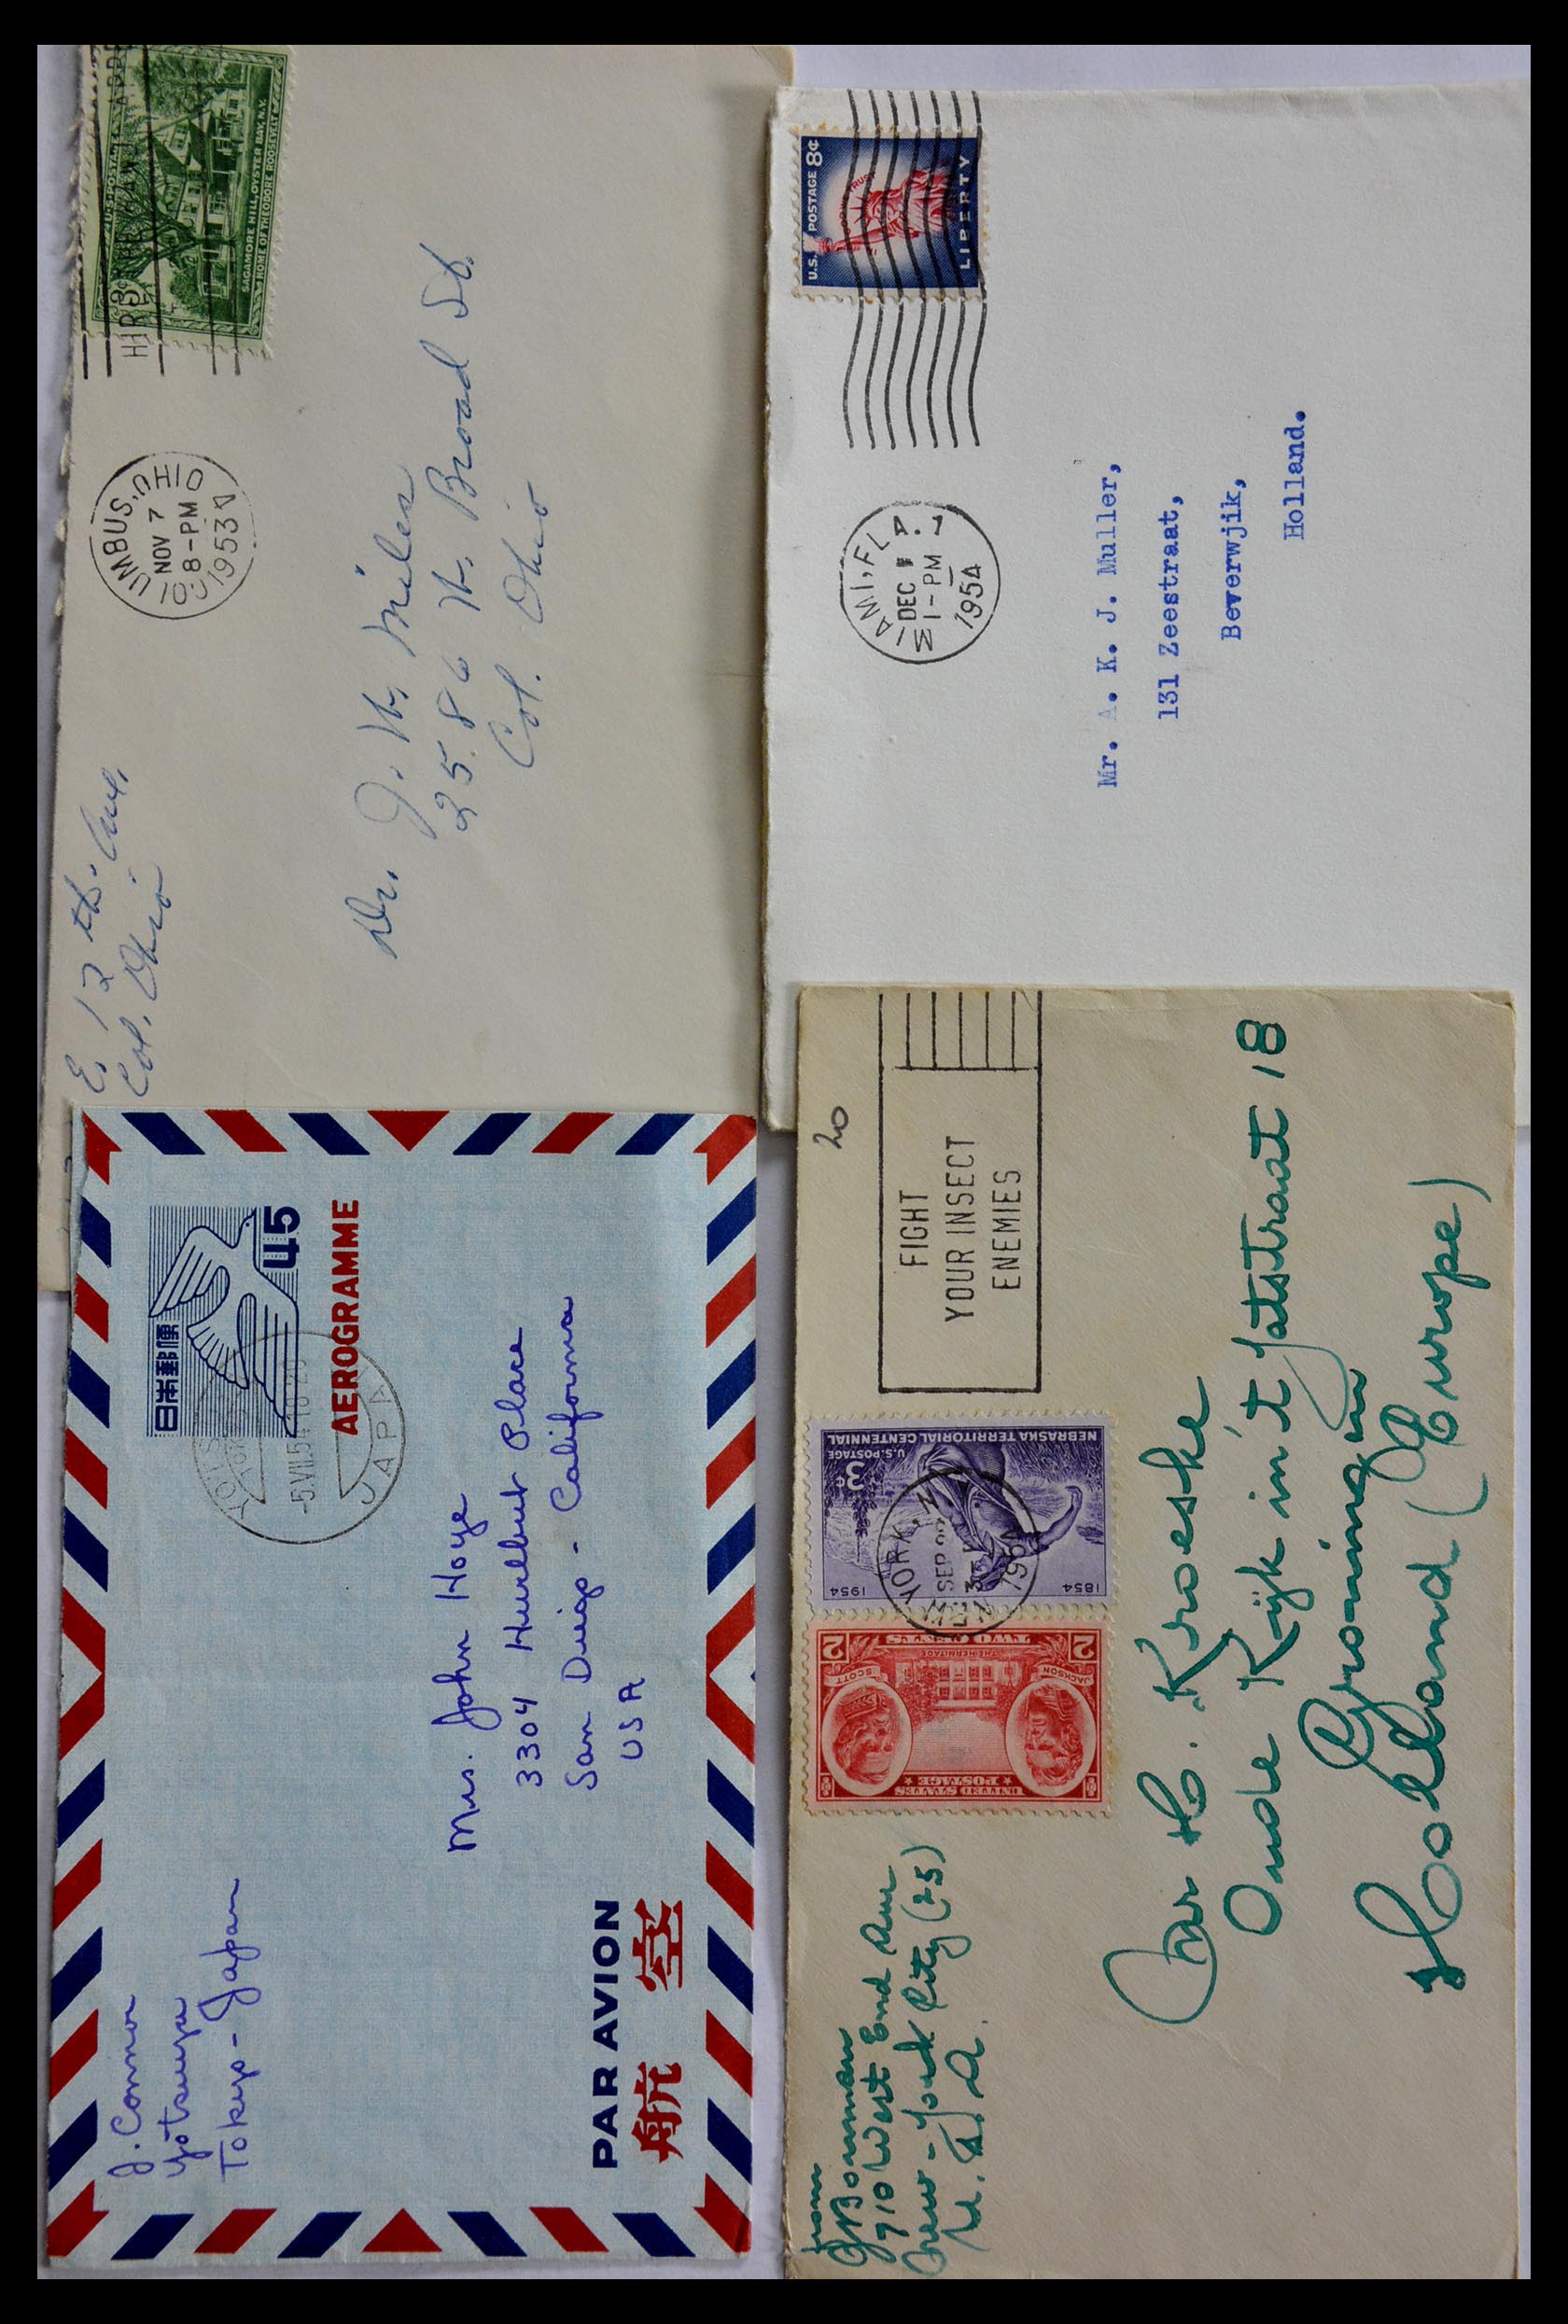 E. 12 th. Ave.
Col. Ohio
COLUMBUS, OHIO
NOV 7
8-PM
1953
U.S. POSTAGE
3¢
SAGAMORE HILL, OYSTER BAY, N.Y.
HOME OF THEODORE ROOSEVELT
Dr. J. W. Miles
2586 W. Broad St.
Col. Ohio
MIAMI, FLA. 7
DEC
1-PM
1954
U.S. POSTAGE 8¢
IN GOD WE TRUST
LIBERTY
Mr. A. K. J. Muller,
131 Zeestraat,
Beverwjik,
Holland.
J. Connor
Yotsuya
Tokyo - Japan
日本郵便
45
AEROGRAMME
-5.VII.54
JAPAN
Mrs. John Hoye
3304 Hurlbut Place
San Diego - California
USA
PAR AVION
航空
from
J Bouman
710 West End Ave
New-York City (25)
U.S.A.
UNITED STATES
POSTAGE
JACKSON
SCOTT
THE HERMITAGE
2 TWO CENTS 2
NEBRASKA TERRITORIAL CENTENNIAL
U.S. POSTAGE
3¢
1854
1954
YORK, N
SEP
1954
FIGHT
YOUR INSECT
ENEMIES
20
H. Kroeske
Oude Kijk in't Jatstraat 18
Groningen
Holland (Europe)